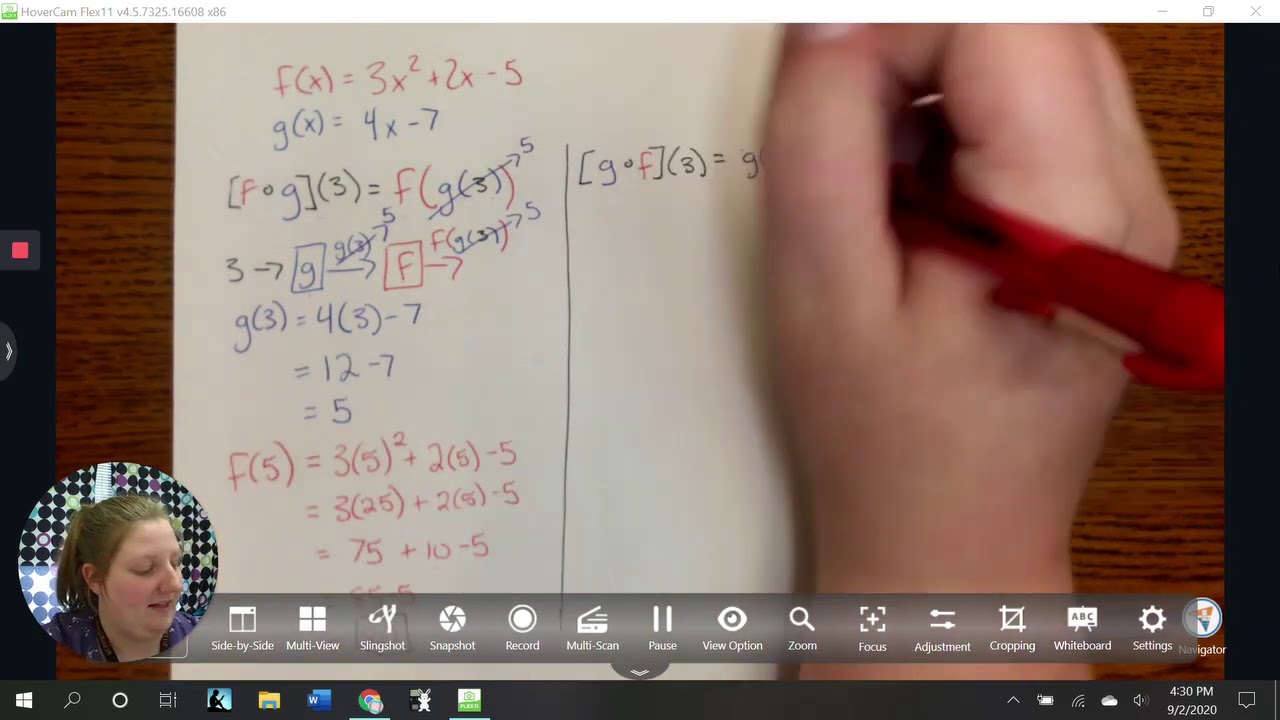 HoverCam Flex11 v4.5.7325.16608 x86
FLEX11
f(x) = 3x² + 2x - 5
g(x) = 4x - 7
[f ∘ g](3) = f(g(3)) → 5
3 → g g(3) → 5 → f f(g(3)) → 5 →
g(3) = 4(3) - 7
= 12 - 7
= 5
f(5) = 3(5)² + 2(5) - 5
= 3(25) + 2(5) - 5
= 75 + 10 - 5
[g ∘ f](3) = g(
Side-by-Side Multi-View Slingshot Snapshot Record Multi-Scan Pause View Option Zoom Focus Adjustment Cropping ABC Whiteboard Settings Navigator
W FLEX11
4:30 PM
9/2/2020